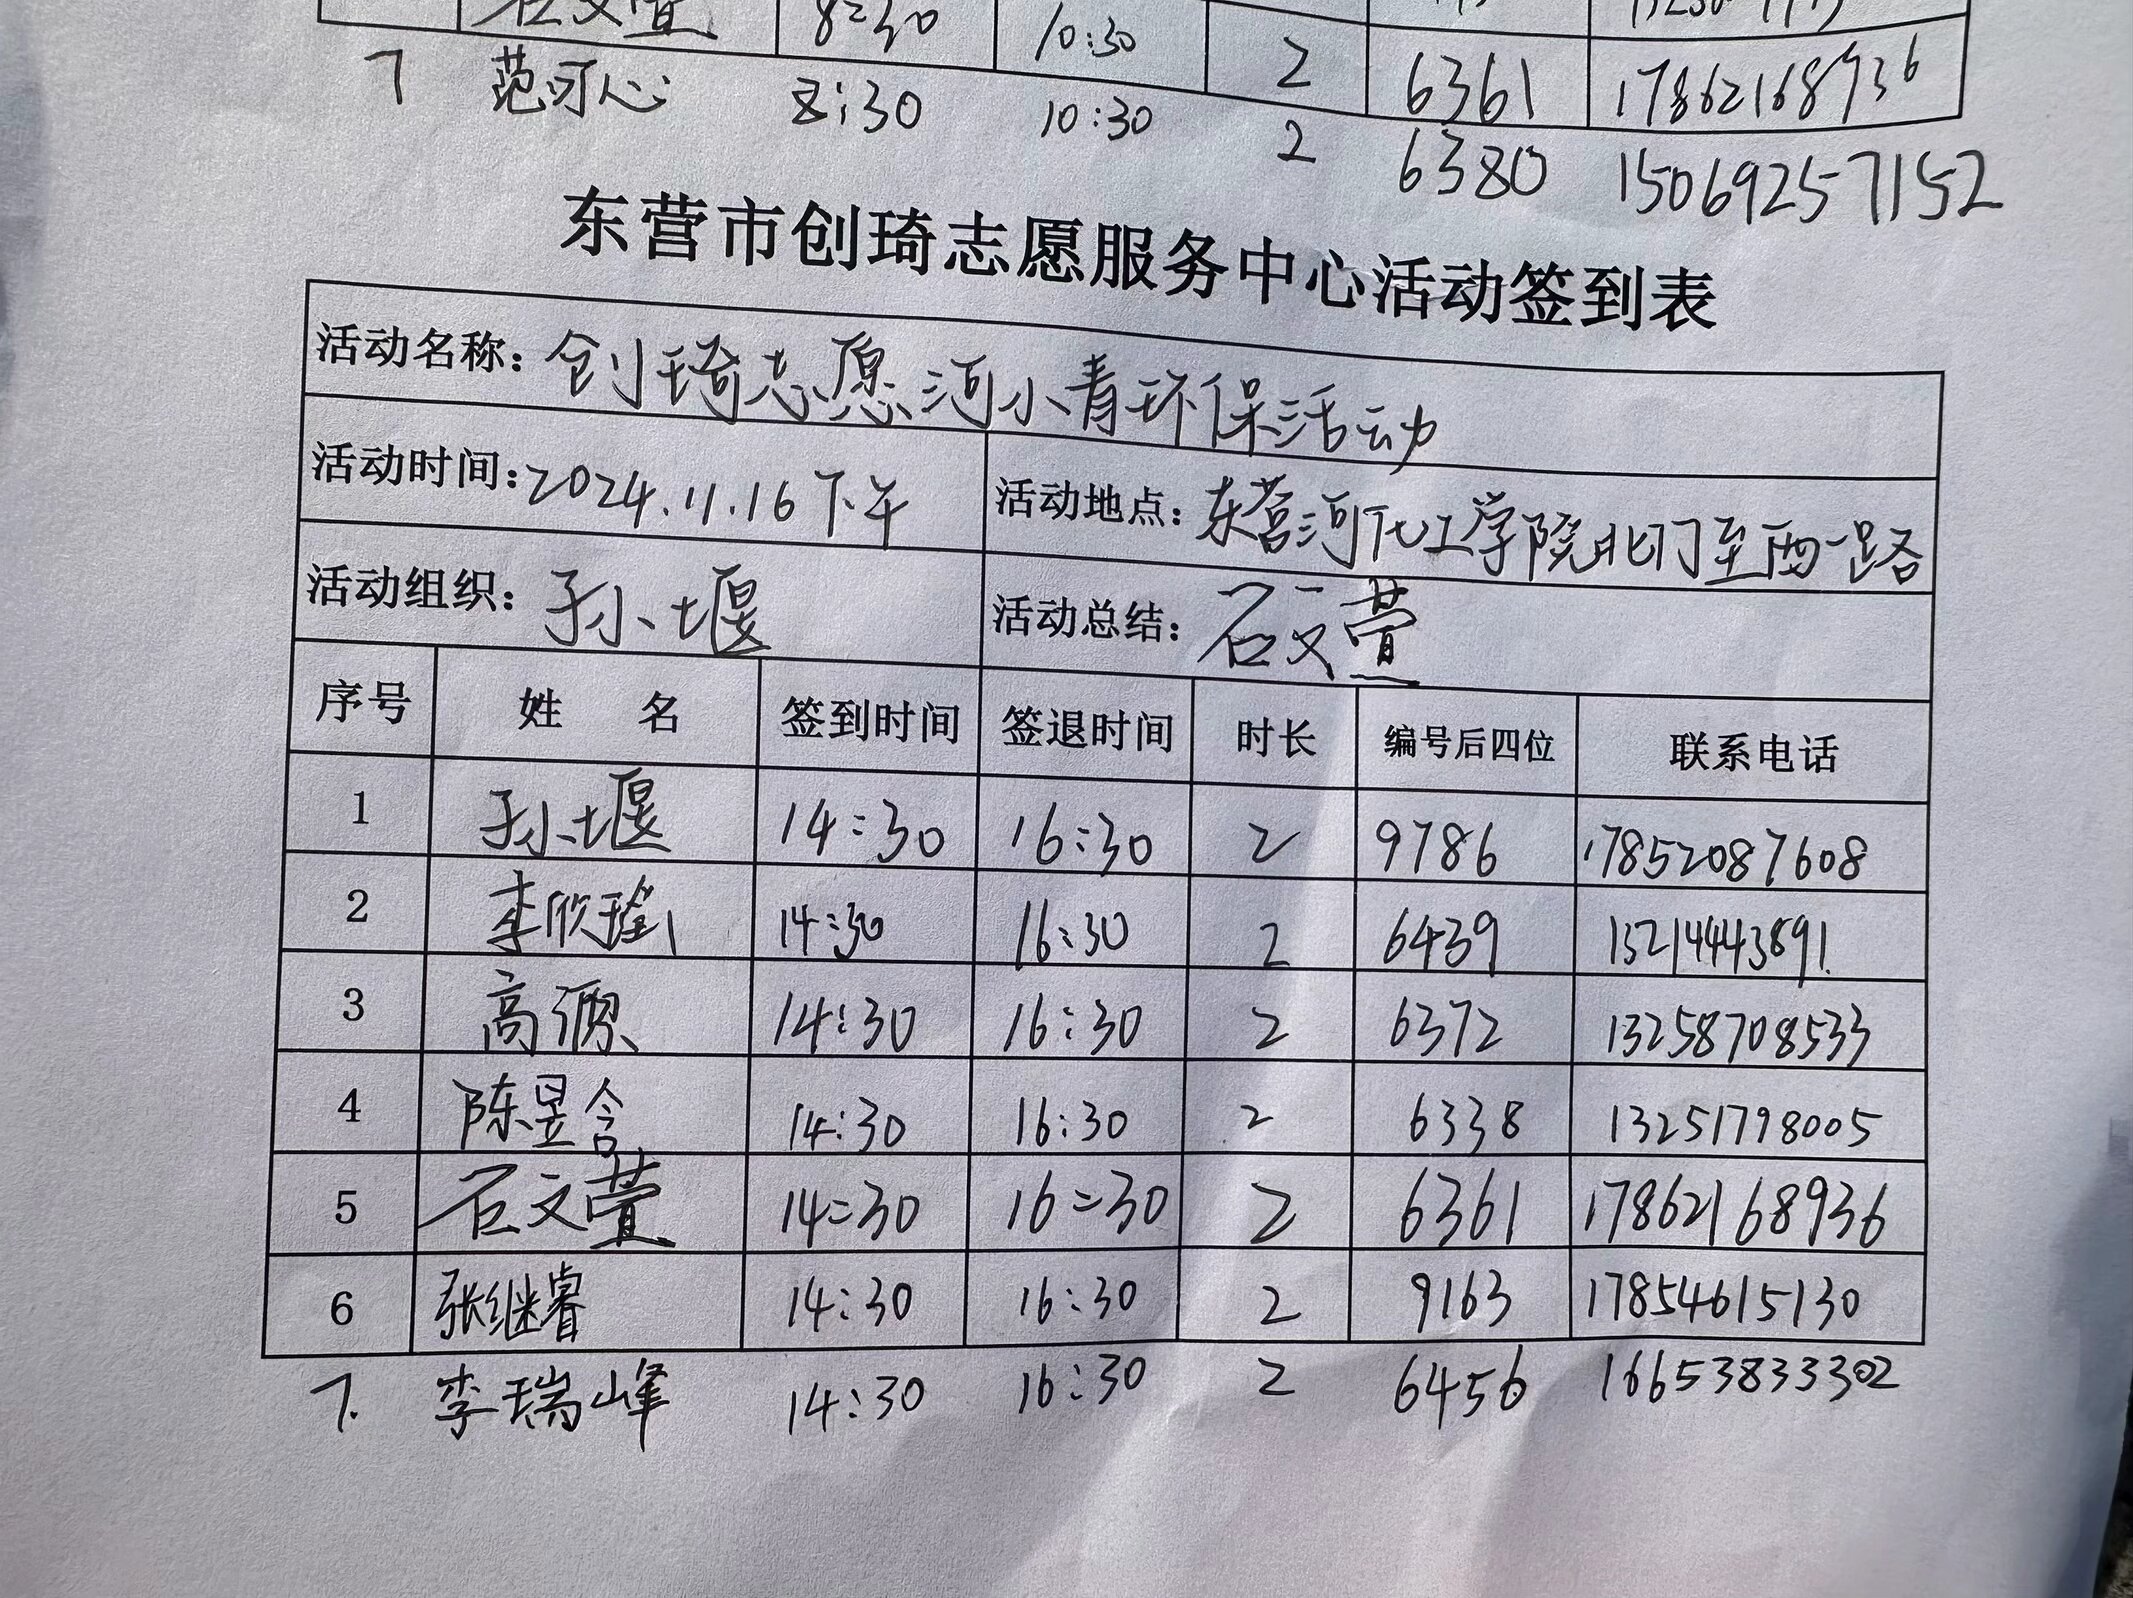 石文萱 8:30 10:30 2 6361 17862168936
7 范可心 8:30 10:30 2 6380 15069257152
东营市创琦志愿服务中心活动签到表
活动名称: 创琦志愿河小青环保活动
活动时间: 2024.11.16下午 活动地点: 东营河化工学院北门至西一路
活动组织: 孙堰 活动总结: 石文萱
序号 姓 名 签到时间 签退时间 时长 编号后四位 联系电话
1 孙堰 14:30 16:30 2 9786 17852087608
2 李欣瑤 14:30 16:30 2 6439 13214443891
3 高源 14:30 16:30 2 6372 13258708533
4 陈昱含 14:30 16:30 2 6338 13251798005
5 石文萱 14:30 16:30 2 6361 17862168936
6 张继睿 14:30 16:30 2 9163 17854615130
7. 李瑞峰 14:30 16:30 2 6456 16653833302